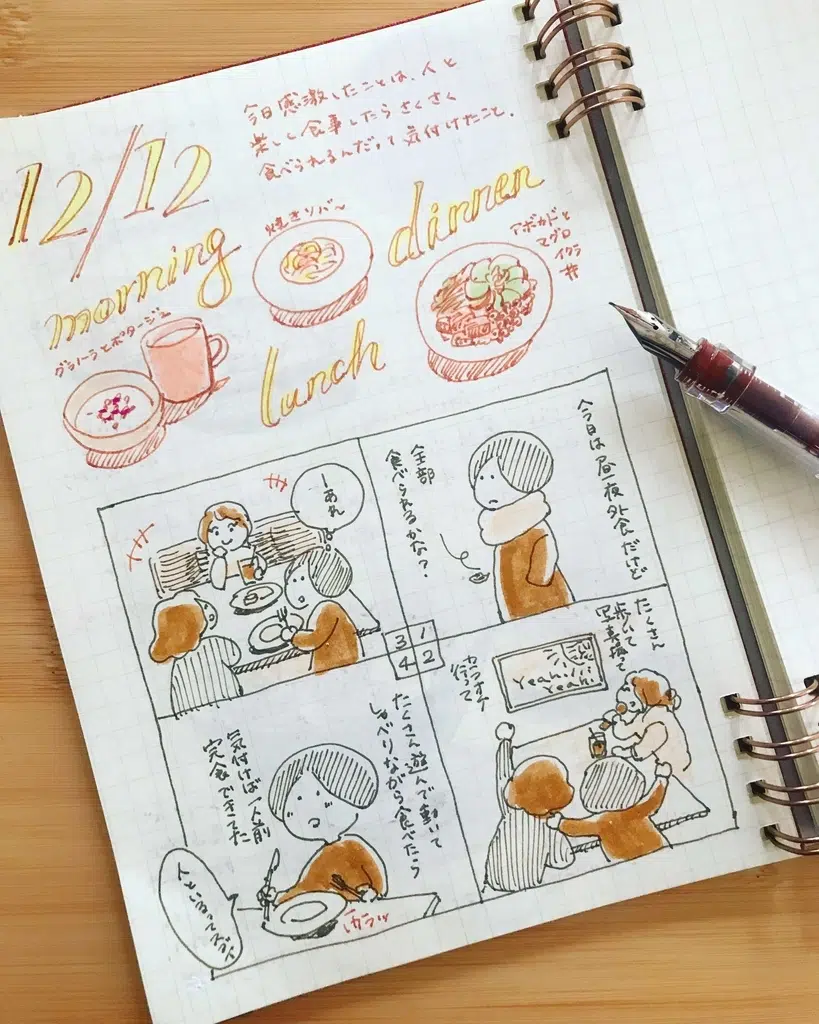 今日感激したことは、人と
楽しく食事したらさくさく
食べられるんだって気付けたこと.
12/12
morning
グラノーラとポタージュ
焼きリバー
lunch
dinner
アボカドと
マグロ
イクラ
丼
今日は昼夜外食だけど
全部
食べられるかな?
たくさん
歩いて
写真撮って
カラオケ
行って
Yeah!
Yeah!
ーあれ
3 1
4 2
たくさん遊んで動いて
しゃべりながら食べたら
気付けば一人前
完食できてた
カラッ
人といるってスゴイ